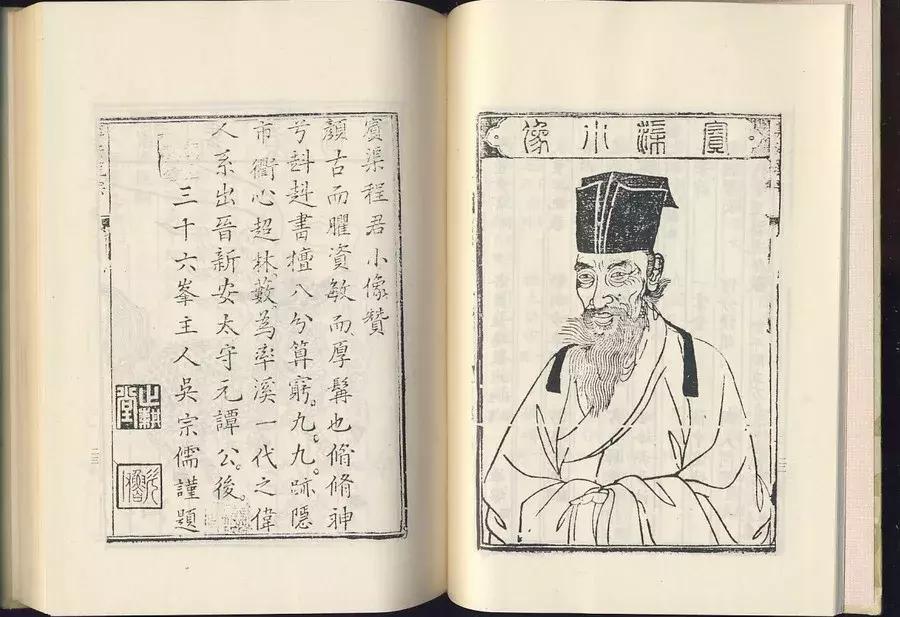 賓渠小像
賓渠程君小像贊
顏古而臞資敏而厚髯也脩脩神
兮書擅八分算窮。九。九。跡隱
市衢心超林藪為率溪一代之偉
人系出晉新安太守元譚公。後。
三十六峯主人吳宗儒謹題